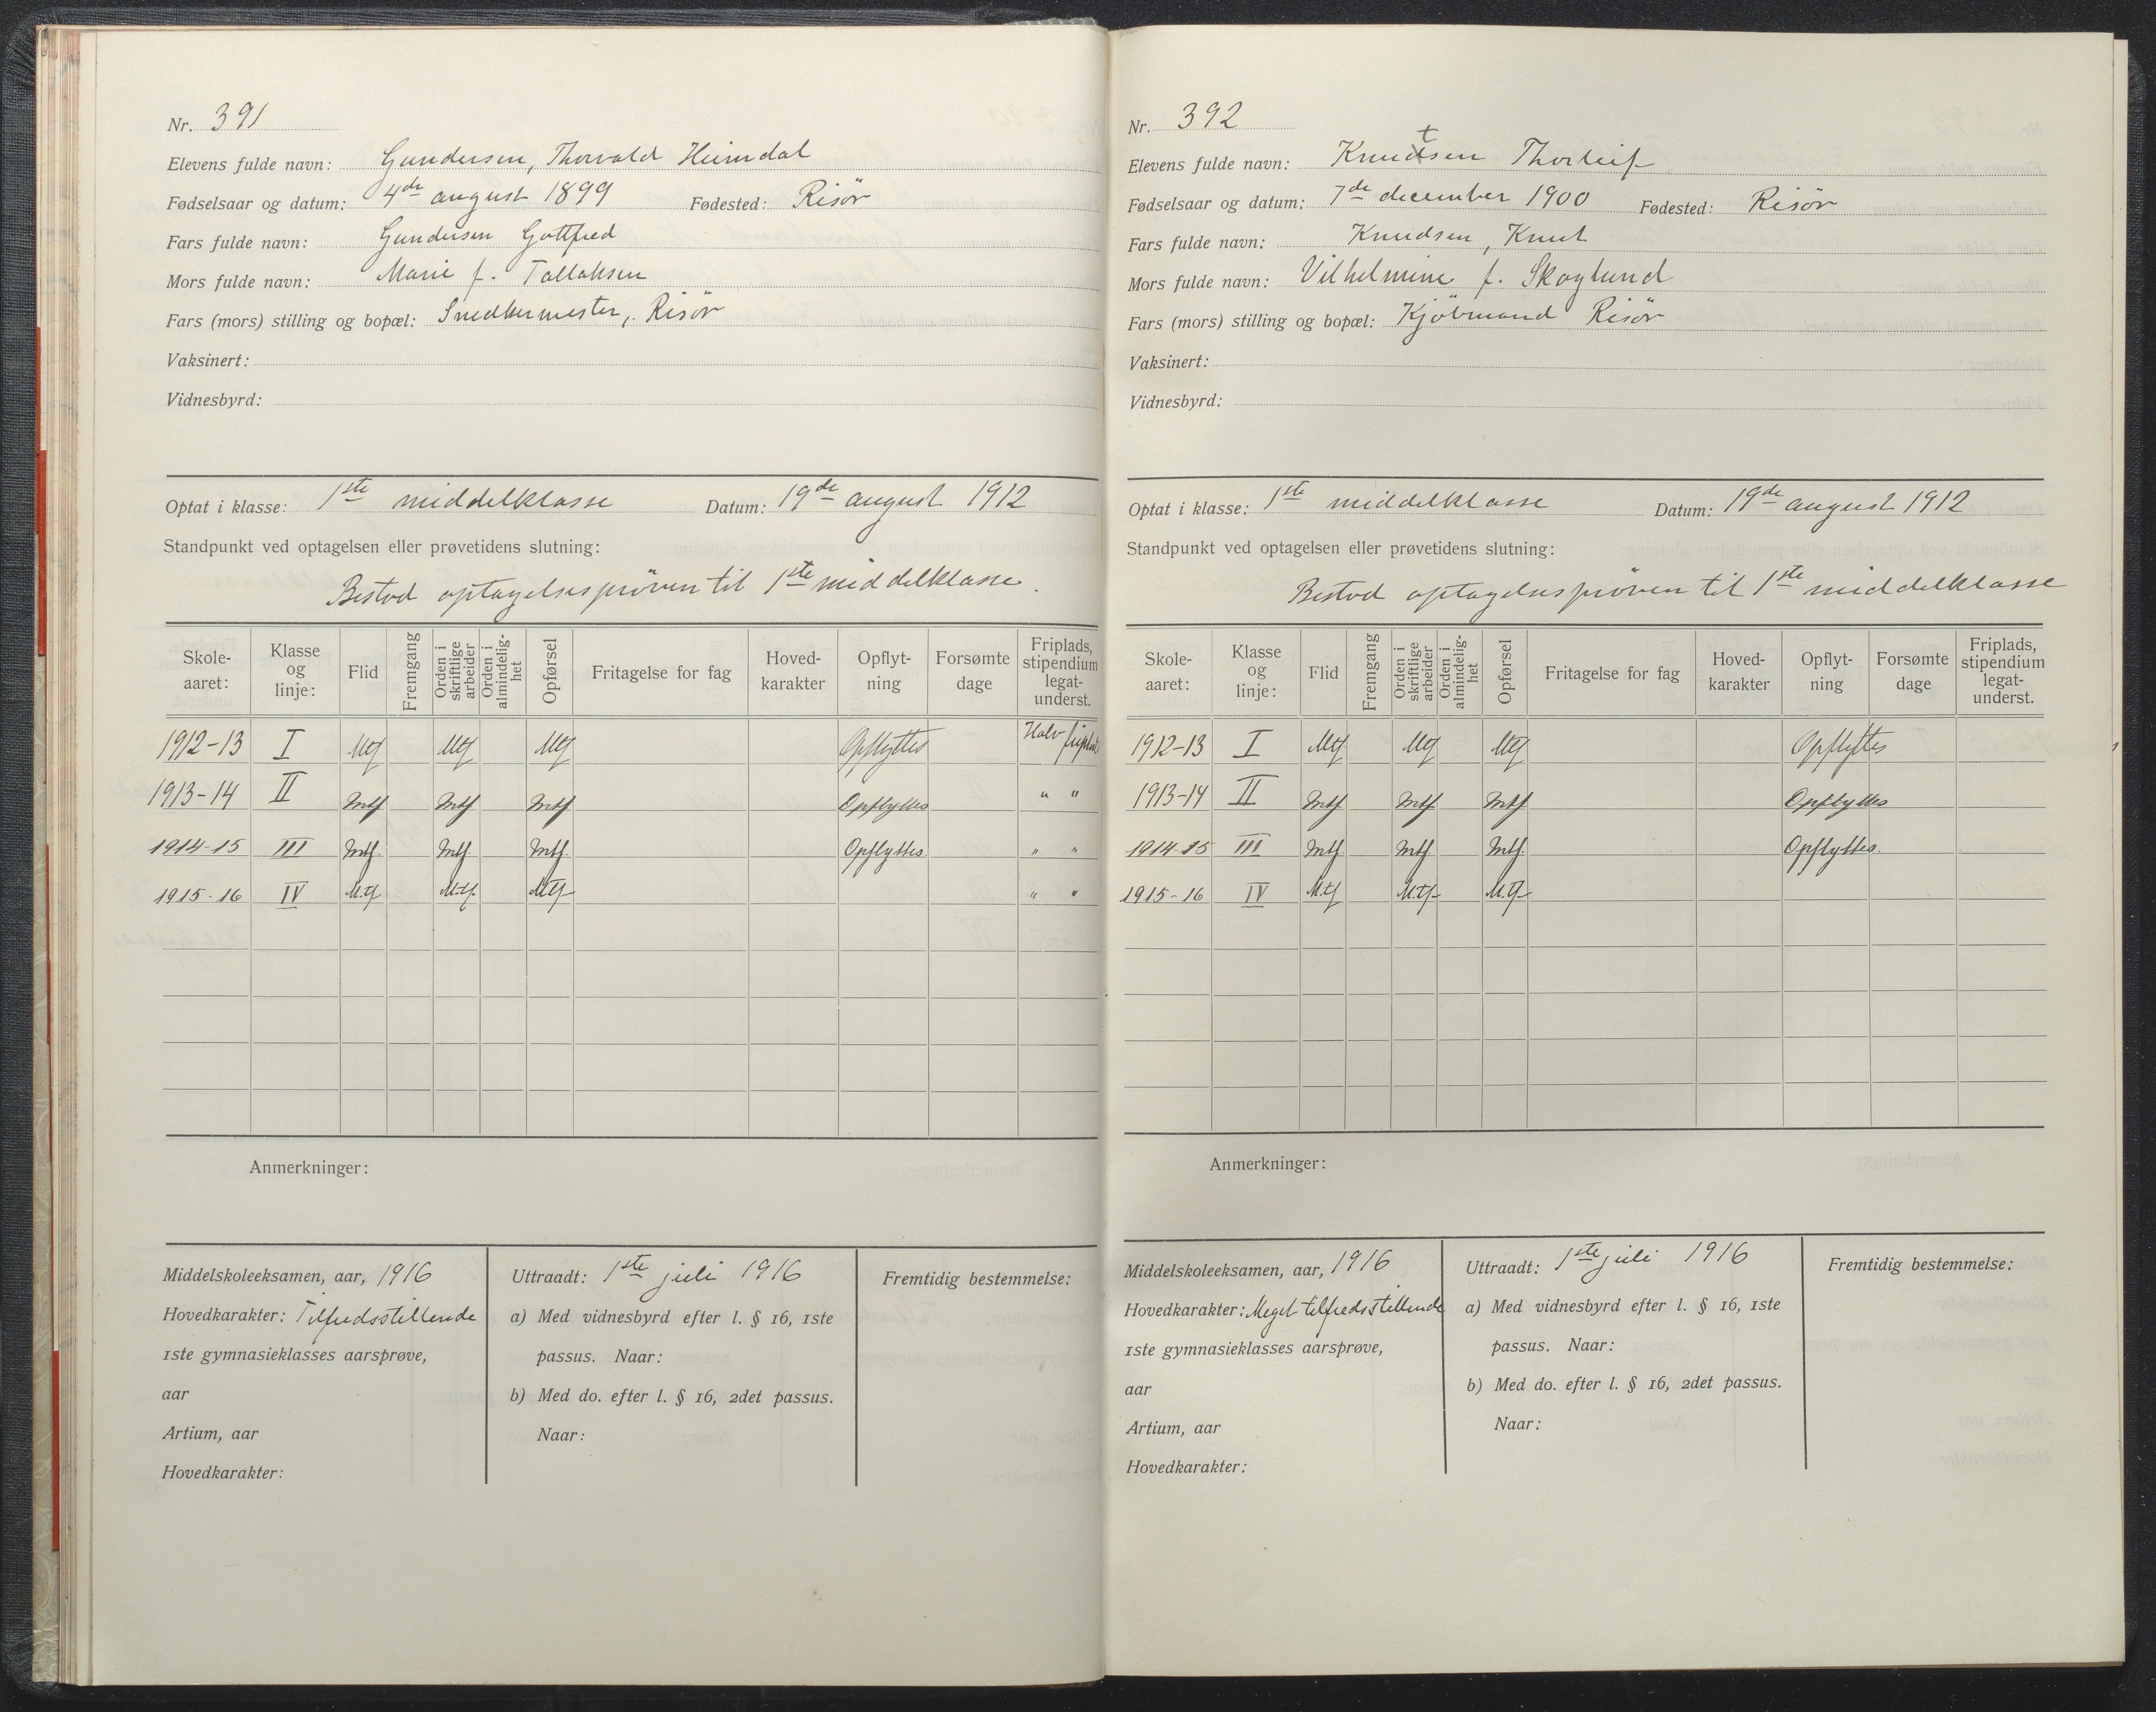 Nr. 391
Elevens fulde navn: Gundersen, Thorvald Heimdal
Fødselsaar og datum: 4de august 1899 Fødested: Risör
Fars fulde navn: Gundersen Gottfred
Mors fulde navn: Marie f. Tallaksen
Fars (mors) stilling og bopæl: Snedkermester, Risör
Vaksinert:
Vidnesbyrd:
Optat i klasse: 1ste middelklasse Datum: 19de august 1912
Standpunkt ved optagelsen eller prøvetidens slutning:
Bestod optagelsespröven til 1ste middelklasse.
Skole-aaret: Klasse og linje: Flid Fremgang Orden i skriftlige arbeider Orden i almindelig-het Opførsel Fritagelse for fag Hoved-karakter Opflyt-ning Forsømte dage Friplads, stipendium legat-underst.
1912-13 I Mtf Mtf Mtf Opflyttes Halv friplads
1913-14 II Mtf Mtf Mtf Opflyttes " "
1914-15 III Mtf. Mtf. Mtf. Opflyttes " "
1915-16 IV M.tf M.tf. M.tf " "
Anmerkninger:
Middelskoleeksamen, aar, 1916
Hovedkarakter: Tilfredsstillende
1ste gymnasieklasses aarsprøve,
aar
Artium, aar
Hovedkarakter:
Uttraadt: 1ste juli 1916
a) Med vidnesbyrd efter l. § 16, 1ste
passus. Naar:
b) Med do. efter l. § 16, 2det passus.
Naar:
Fremtidig bestemmelse:
Nr. 392
t
Elevens fulde navn: Knudsen Thorleif
Fødselsaar og datum: 7de december 1900 Fødested: Risör
Fars fulde navn: Knudsen, Knut
Mors fulde navn: Vilhelmine f. Skoglund
Fars (mors) stilling og bopæl: Kjöbmand Risör
Vaksinert:
Vidnesbyrd:
Optat i klasse: 1ste middelklasse Datum: 19de august 1912
Standpunkt ved optagelsen eller prøvetidens slutning:
Bestod optagelsespröven til 1ste middelklasse
Skole-aaret: Klasse og linje: Flid Fremgang Orden i skriftlige arbeider Orden i almindelig-het Opførsel Fritagelse for fag Hoved-karakter Opflyt-ning Forsømte dage Friplads, stipendium legat-underst.
1912-13 I Mtf Mtf Mtf Opflyttes
1913-14 II Mtf Mtf Mtf Opflyttes
1914-15 III Mtf Mtf. Mtf. Opflyttes.
1915-16 IV M.tf M.tf M.tf
Anmerkninger:
Middelskoleeksamen, aar, 1916
Hovedkarakter: Meget tilfredsstillende
1ste gymnasieklasses aarsprøve,
aar
Artium, aar
Hovedkarakter:
Uttraadt: 1ste juli 1916
a) Med vidnesbyrd efter l. § 16, 1ste
passus. Naar:
b) Med do. efter l. § 16, 2det passus.
Naar:
Fremtidig bestemmelse: